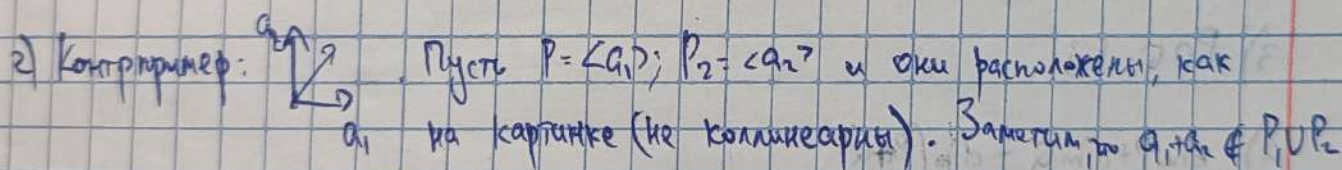 2) Контрпример: a₂ . Пусть P = <a₁>; P₂ = <a₂> и они расположены, как
a₁ на картинке (не коллинеарны). Заметим, что a₁+a₂ ∉ P₁∪P₂